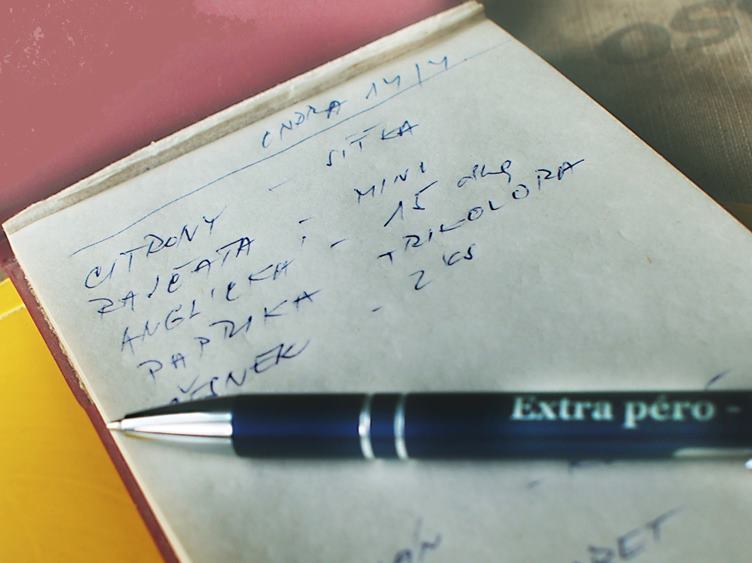 ONDRA 14/4
CITRONY - SÍŤKA
RAJČATA : MINI
ANGLICKA - 15 dkg
PAPRIKA TRIKOLORA
ČESNEK - 2 KS
Extra péro -